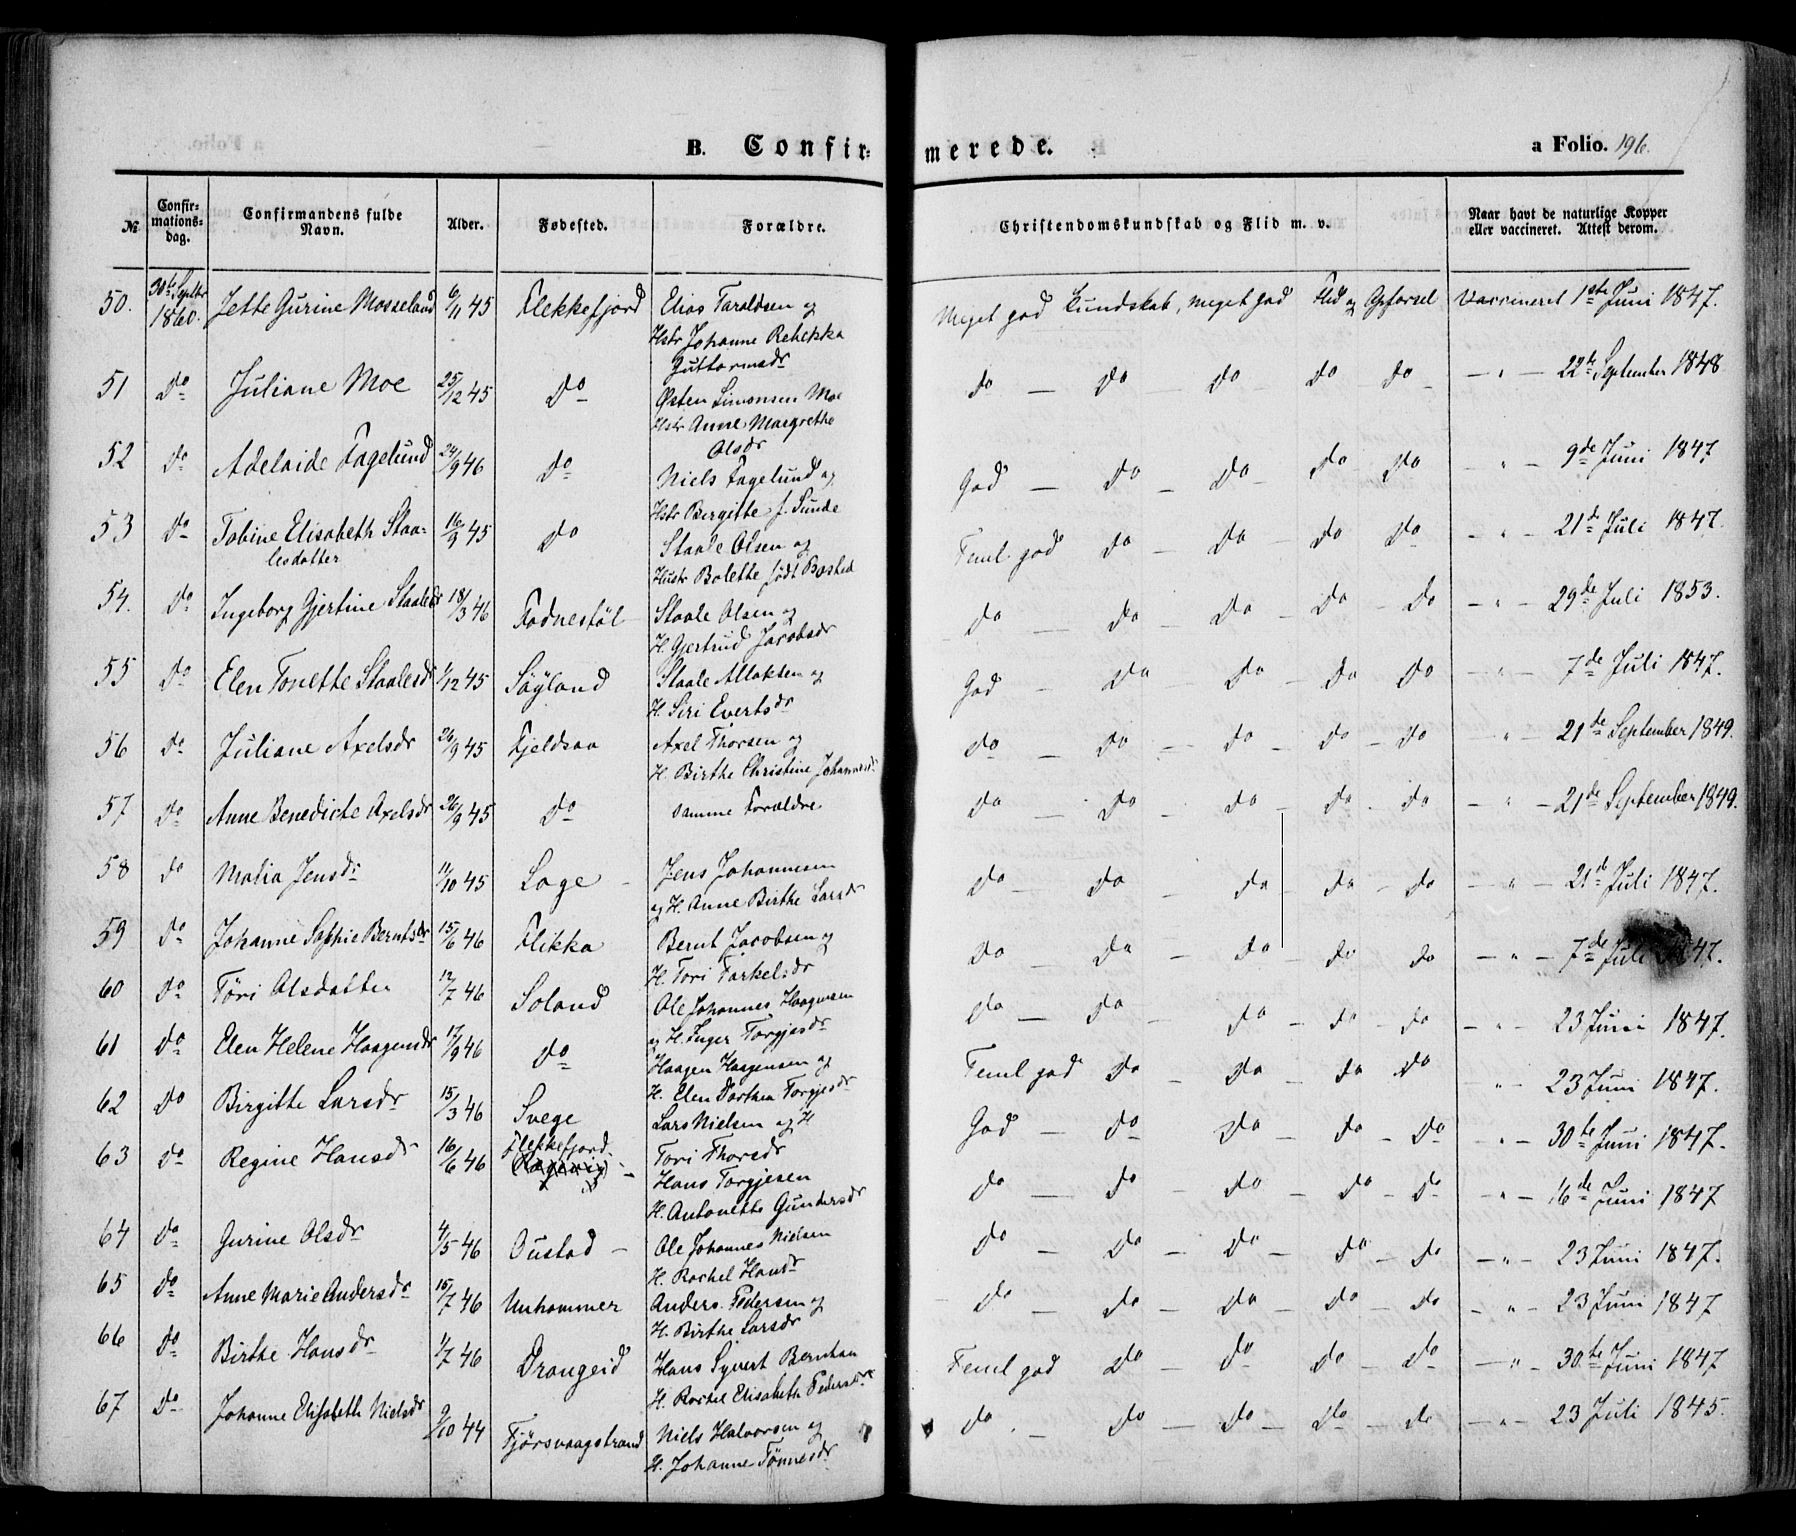 B. Confirmerede. a Folio. 196.
№ Confirmationsdag. Confirmandens fulde Navn. Alder. Fødested. Forældre. Christendomskundskab og Flid m. v. Naar havt de naturlige Kopper eller vaccineret. Attest derom.
50. 30te Septbr 1860. Jette Gurine Mosseland 6/11 45 Flekkefjord Elias Taraldsen og Meget god Kundskab, meget god Flid og Opførsel Vaccineret 1ste Juni 1847.
Hstr Johanne Rebekka
Guttormsdr
51 Do Juliane Moe 25/12 45 Do Østen Simonsen Moe do — Do — Do Do Do — " — 22de September 1848
Hstr Anne Margrethe
Olsdr
52 do Adelaide Fagelund 24/9 46 Do Niels Fagelund og God — Do — Do — Do Do — " — 9de Juni 1847
Hstr Birgitte f. Sunde
53 Do Tobine Elisabeth Staa- 16/9 45 Do Staale Olsen og Teml god do — Do — Do — Do — " — 21de Juli 1847.
lesdatter Hustr Bolette født Basted
54. Do Ingeborg Gjertine Staalesdr 18/3 46 Fodnestøl Staale Olsen og Do — Do — Do — Do — Do — " — 29de Juli 1853.
H. Gjertrud Jacobsdr
55 Do Elen Tonette Staalesdr 1/12 45 Søyland Staale Atlaksen og God — Do — Do — Do — Do — " — 7de Juli 1847.
H. Siri Evertsdr
56 do Juliane Axelsdr 26/9 45 Fjeldsaa Axel Thorsen og do — Do — do — do — do " — 21de September 1849.
H. Birthe Christine Johannesdr
57 Do Anne Benedicte Axelsdr 26/9 45 Do samme Forældre Do — Do — Do — do . do — " — 21de September 1849.
58 do Malia Jensdr 11/10 45 Loge — Jens Johannesen Do — Do — do — do — do " — 21de Juli 1847.
og H. Anne Birthe Larsdr
59 do Johanne Sophie Berntsdr 15/6 46 Flikka Bernt Jacobsen og Do — Do — Do — do do — " — 7de Juli 1847.
H. Tori Tarkelsdr
60 do Töri Olsdatter 17/7 46 Soland Ole Johannes Haagensen do — Do — do — do — do — " — 23 Juni 1847.
og H. Inger Torgjesdr
61 do Elen Helene Haagensdr 17/9 46 do Haagen Haagensen og Teml god Do — Do — do Do " — 23 Juni 1847.
H. Elen Dorthea Torgjesdr
62 Do Birgitte Larsdr 15/3 46 Svege Lars Nielsen og H God — do — Do — do — Do " — 30te Juni 1847.
Tori Thorsdr
63 do Regine Hansdr 16/6 46 Flekkefjord. Hans Torgjesen do — do — do — do — do " — 16de Juni 1847
H. Antonette Gundersdr
64 do Gurine Olsdr 4/5 46 Oustad — Ole Johannes Nielsen do — Do — Do — do — do — " — 23 Juni 1847.
H. Rachel Hansdr
65 do Anne Marie Andersdr 15/7 46 Unhammer Anders Pedersen og do — do — do — do — do — " — 23 Juni 1847
H. Birthe Larsdr
66 do Birthe Hansdr 1/7 46 Drangeid Hans Syvert Berntsen Teml god do — do — do — do — " — 30te Juni 1847
H. Rachel Elisabeth Pedersdr
67 Do Johanne Elisabeth Nielsdr 9/10 44 Fjörsvaagstrand Niels Halvorsen og do . — do — Do — Do — do — " — 23 Juli 1845.
H. Johanne Tønnesdr